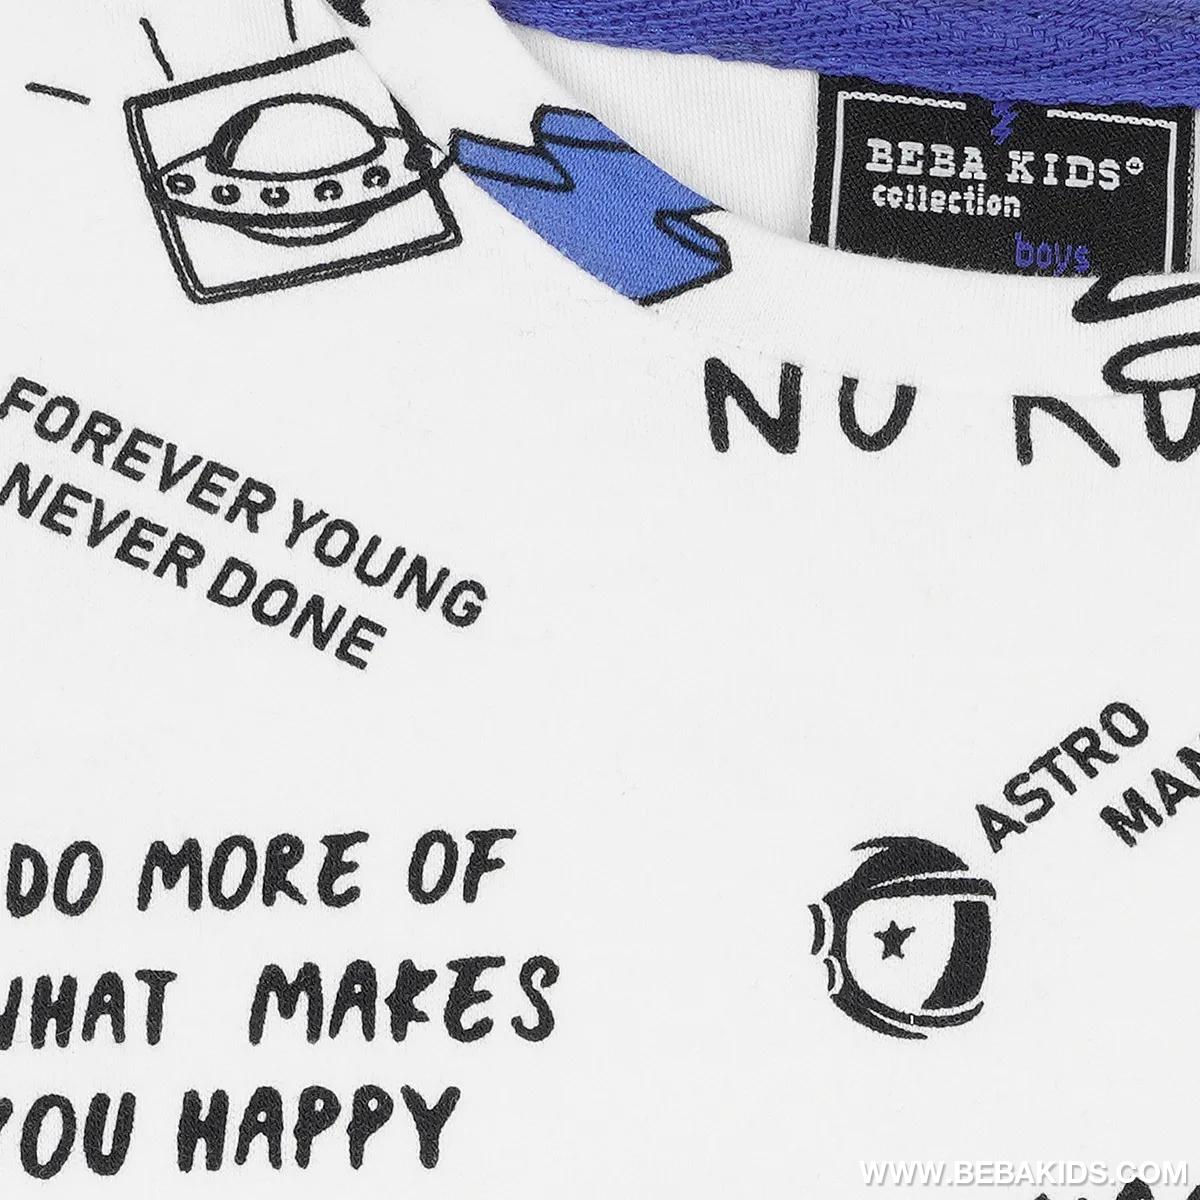 BEBA KIDS
collection
boys
FOREVER YOUNG
NEVER DONE
ASTRO
MAN
DO MORE OF
WHAT MAKES
YOU HAPPY
WWW.BEBAKIDS.COM